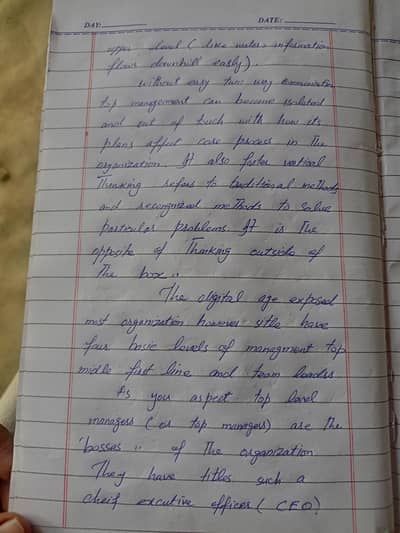 DAY: DATE:
upper level ( like water, information
flows downhill easily).
without easy two way communication
top management can become isolated
and out of tuch with how its
plans affect core process in The
organization. It also foster vertical
Thinking refers to traditional methods
and recognized methods to solve
particular problems. It is The
opposite of Thinking outside of
The box"
The digital age exposed
most organization however still have
four basic levels of managment top
midle first line and team leaders
As you aspect top level
managers ( or top managers) are the
'bosses" of The organization
They have titles such a
cheif excutive officer ( CEO)